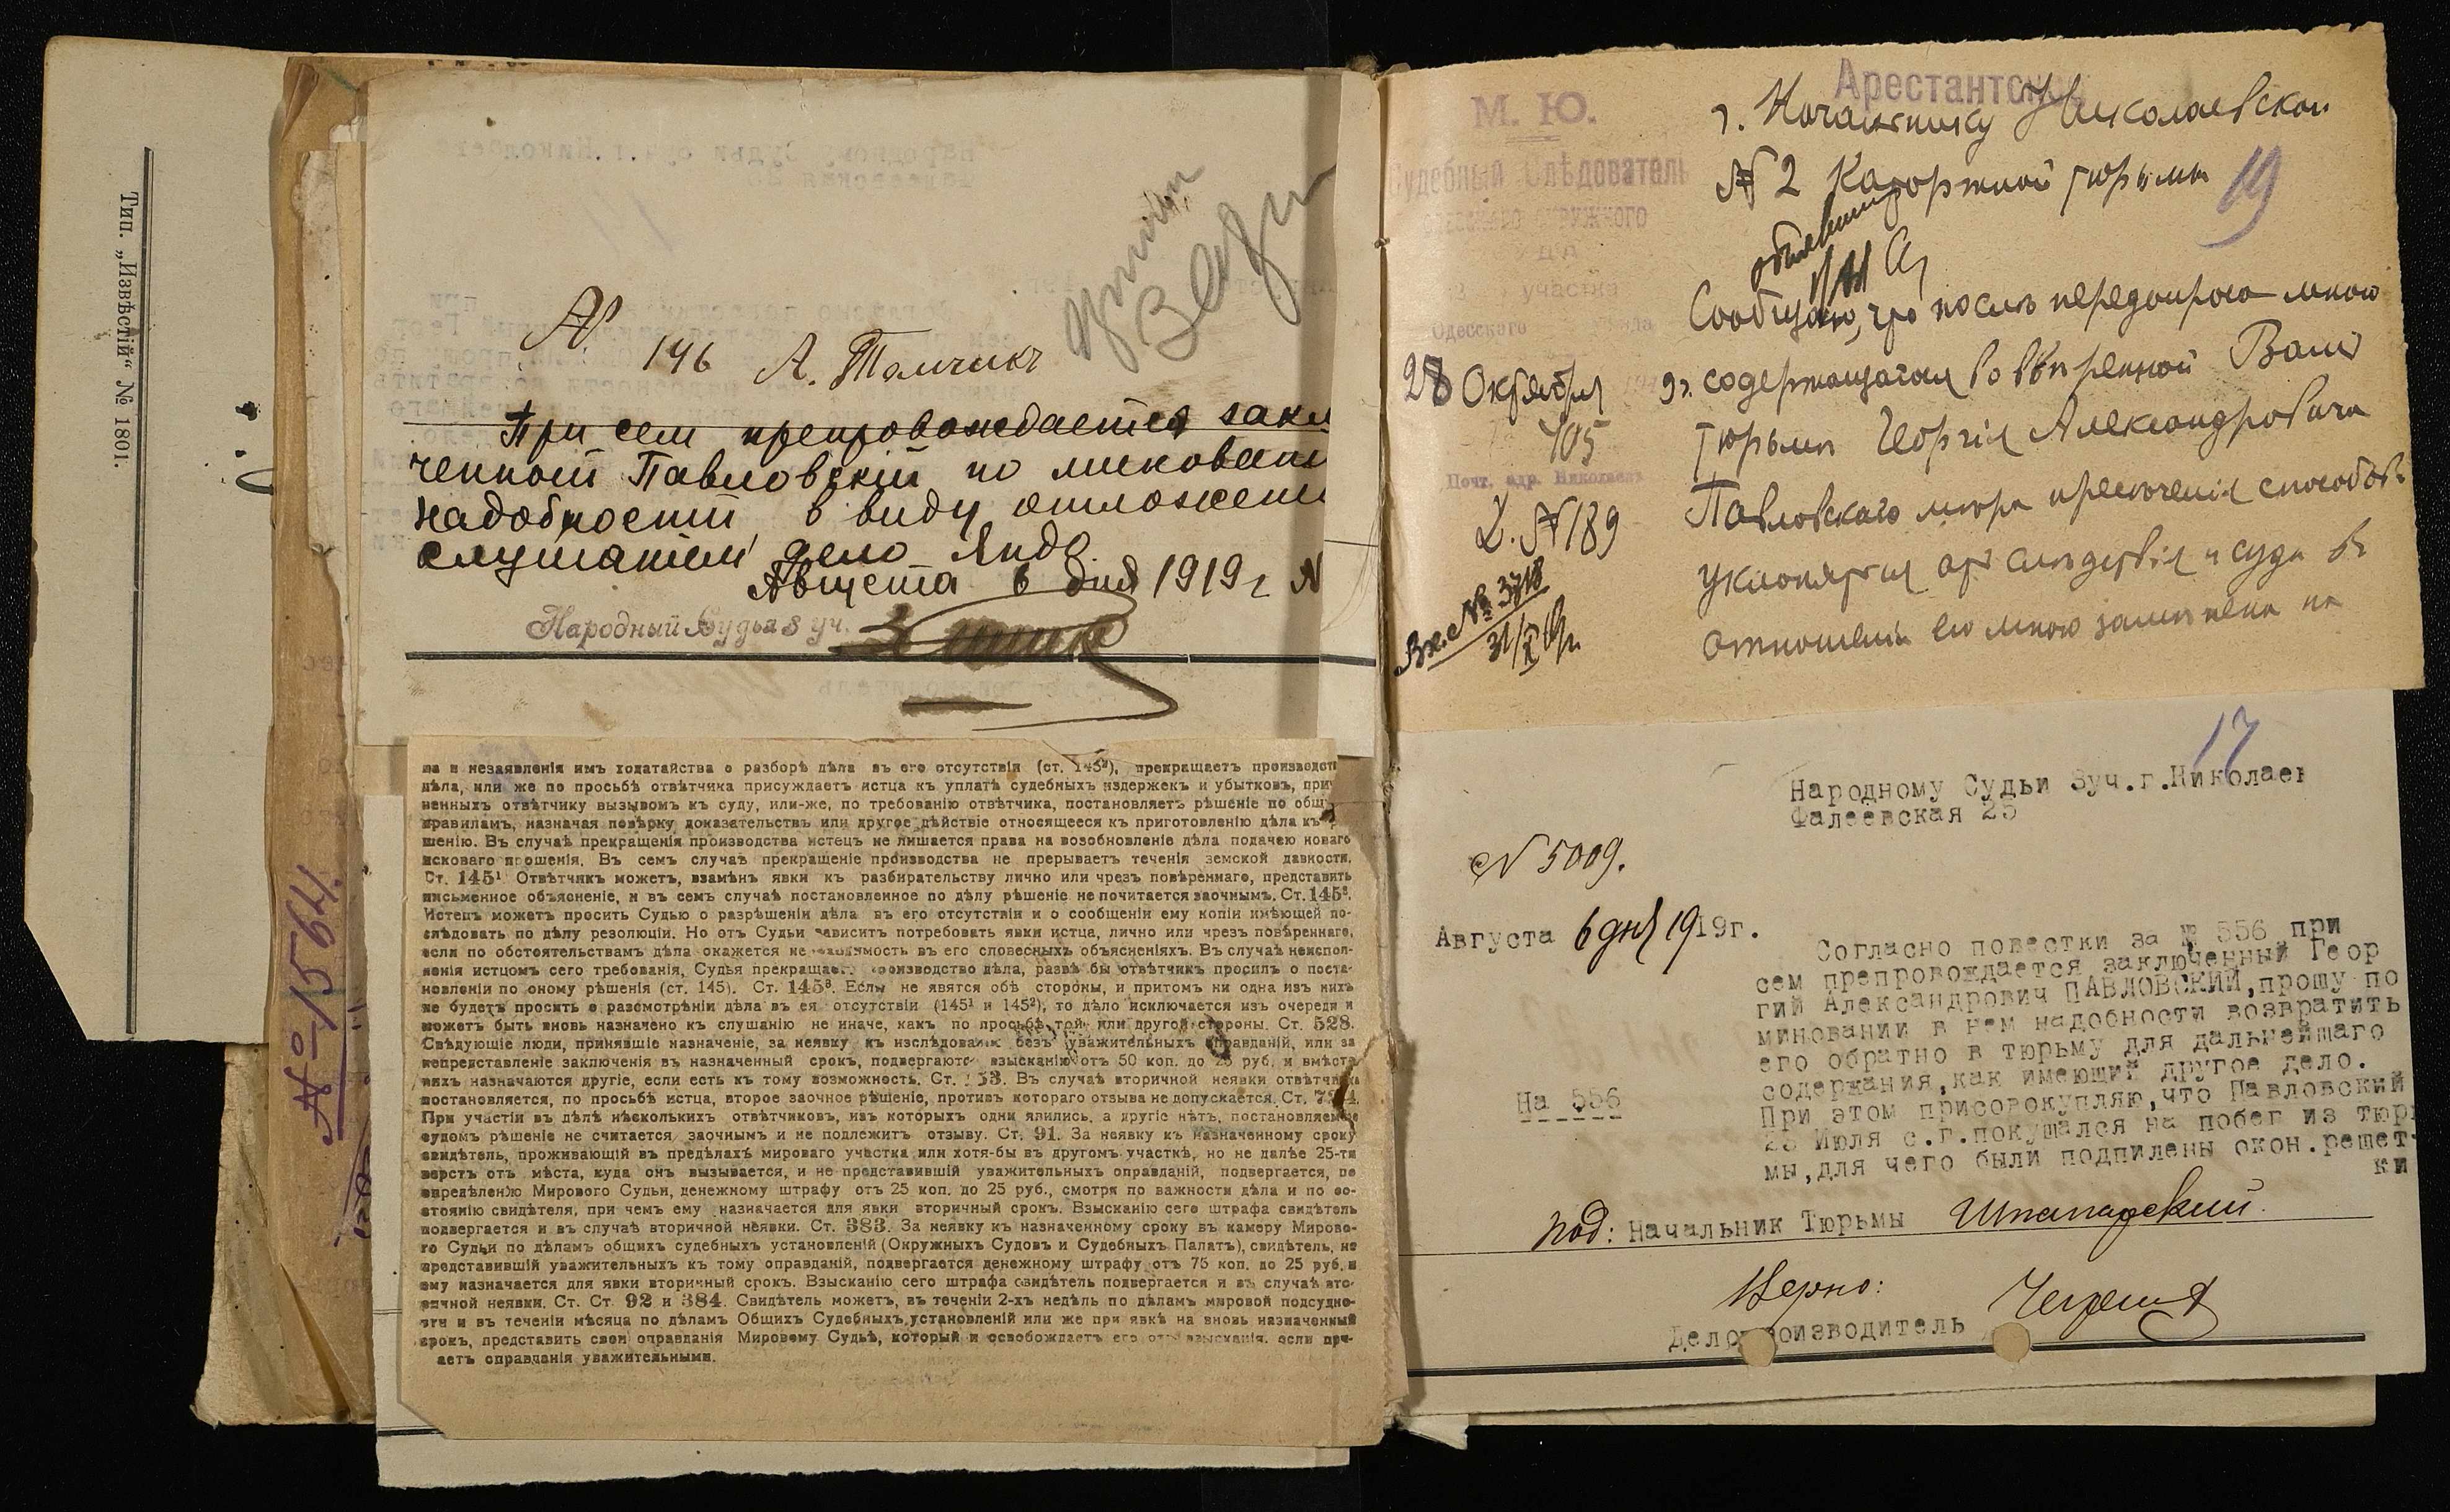 Тип. „Извѣстій“ № 1801.
№ 1564.
№ 146
При сем препровождается закл
ченный Павловскій по миновани
надобности в виду отложени
слушанием дело
Августа 6 дня 1919 г. N
Народный Судья 3 уч.
дѣла, или же по просьбѣ отвѣтчика присуждаетъ истца къ уплатѣ судебныхъ издержекъ и убытковъ, при
ненныхъ отвѣтчику вызывомъ къ суду, или-же, по требованію отвѣтчика, постановляетъ рѣшеніе по общ
правиламъ, назначая повѣрку доказательствъ или другое дѣйствіе относящееся къ приготовленію дѣла къ
шенію. Въ случаѣ прекращенія производства истецъ не лишается права на возобновленіе дѣла подачею новаго
исковаго прошенія. Въ семъ случаѣ прекращеніе производства не прерываетъ теченія земской давности.
Ст. 145¹ Отвѣтчикъ можетъ, взамѣнъ явки къ разбирательству лично или чрезъ повѣреннаго, представить
письменное объясненіе, и въ семъ случаѣ постановленное по дѣлу рѣшеніе не почитается заочнымъ. Ст. 145².
Истецъ можетъ просить Судью о разрѣшеніи дѣла въ его отсутствіи и о сообщеніи ему копіи имѣющей по-
слѣдовать по дѣлу резолюціи. Но отъ Судьи зависитъ потребовать явки истца, лично или чрезъ повѣреннаго,
если по обстоятельствамъ дѣла окажется въ его словесныхъ объясненіяхъ. Въ случаѣ неиспол-
ненія истцомъ сего требованія, Судья прекращаетъ производство дѣла, развѣ бы отвѣтчикъ просилъ о поста-
новленіи по оному рѣшенія (ст. 145). Ст. 145³. Если не явятся обѣ стороны, и притомъ ни одна изъ нихъ
не будетъ просить о разсмотрѣніи дѣла въ ея отсутствіи (145¹ и 145²), то дѣло исключается изъ очереди и
можетъ быть вновь назначено къ слушанію не иначе, какъ по просьбѣ той или другой стороны. Ст. 528.
Свѣдующіе люди, принявшіе назначеніе, за неявку къ изслѣдованію безъ уважительныхъ оправданій, или за
непредставленіе заключенія въ назначенный срокъ, подвергаются взысканію отъ 50 коп. до 25 руб. и вмѣсто
нихъ назначаются другіе, если есть къ тому возможность. Ст. 53. Въ случаѣ вторичной неявки отвѣтчика
постановляется, по просьбѣ истца, второе заочное рѣшеніе, противъ котораго отзыва не допускается. Ст.
При участіи въ дѣлѣ нѣсколькихъ отвѣтчиковъ, изъ которыхъ одни явились, а другіе нѣтъ, постановляемое
судомъ рѣшеніе не считается заочнымъ и не подлежитъ отзыву. Ст. 91. За неявку къ назначенному сроку
свидѣтель, проживающій въ предѣлахъ мироваго участка или хотя-бы въ другомъ участкѣ, но не далѣе 25-ти
верстъ отъ мѣста, куда онъ вызывается, и не представившій уважительныхъ оправданій, подвергается, по
опредѣленію Мирового Судьи, денежному штрафу отъ 25 коп. до 25 руб., смотря по важности дѣла и по со-
стоянію свидѣтеля, при чемъ ему назначается для явки вторичный срокъ. Взысканію сего штрафа свидѣтель
подвергается и въ случаѣ вторичной неявки. Ст. 383. За неявку къ назначенному сроку въ камеру Мирово-
го Судьи по дѣламъ общихъ судебныхъ установленій (Окружныхъ Судовъ и Судебныхъ Палатъ), свидѣтель, не
представившій уважительныхъ къ тому оправданій, подвергается денежному штрафу отъ 75 коп. до 25 руб. и
ему назначается для явки вторичный срокъ. Взысканію сего штрафа свидѣтель подвергается и въ случаѣ вто-
ричной неявки. Ст. Ст. 92 и 384. Свидѣтель можетъ, въ теченіи 2-хъ недѣль по дѣламъ мировой подсудно-
сти и въ теченіи мѣсяца по дѣламъ Общихъ Судебныхъ установленій или же при явкѣ на вновь назначенный
срокъ, представить свои оправданія Мировому Судьѣ, который и освобождаетъ его отъ взысканія, если при-
аетъ оправданія уважительными.
Арестантское
М. Ю.
Судебный Слѣдователь
окружного
участка
Одесскаго
28 Октября 9г.
705
Почт. адр. Николаевъ
Д. №189
Вх. № 3718
31/X 19г.
г. Начальнику Николаевской
№ 2 Каторжной тюрьмы
19
Сообщаю, что послѣ передопроса мною
содержащагося во ввѣренной Вамъ
тюрьмѣ Георгія Александровича
Павловскаго мѣра пресѣченія способовъ
уклоняться отъ слѣдствія и суда въ
отношеніи его мною замѣнена на
17
Народному Судьи 3уч.г.Николаев
Фалеевская 25
N 5009.
Августа 6 дня 1919г.
Согласно повестки за № 556 при
сем препровождается заключенный Геор
гий Александрович ПАВЛОВСКИЙ,прошу по
миновании в нем надобности возвратить
его обратно в тюрьму для дальнейшаго
содержания,как имеющий другое дело.
На 556
При этом присовокупляю,что Павловский
25 Июля с.г.покушался на побег из тюрь
мы,для чего были подпилены окон.решет-
ки
Под: Начальник Тюрьмы
Верно:
Делопроизводитель